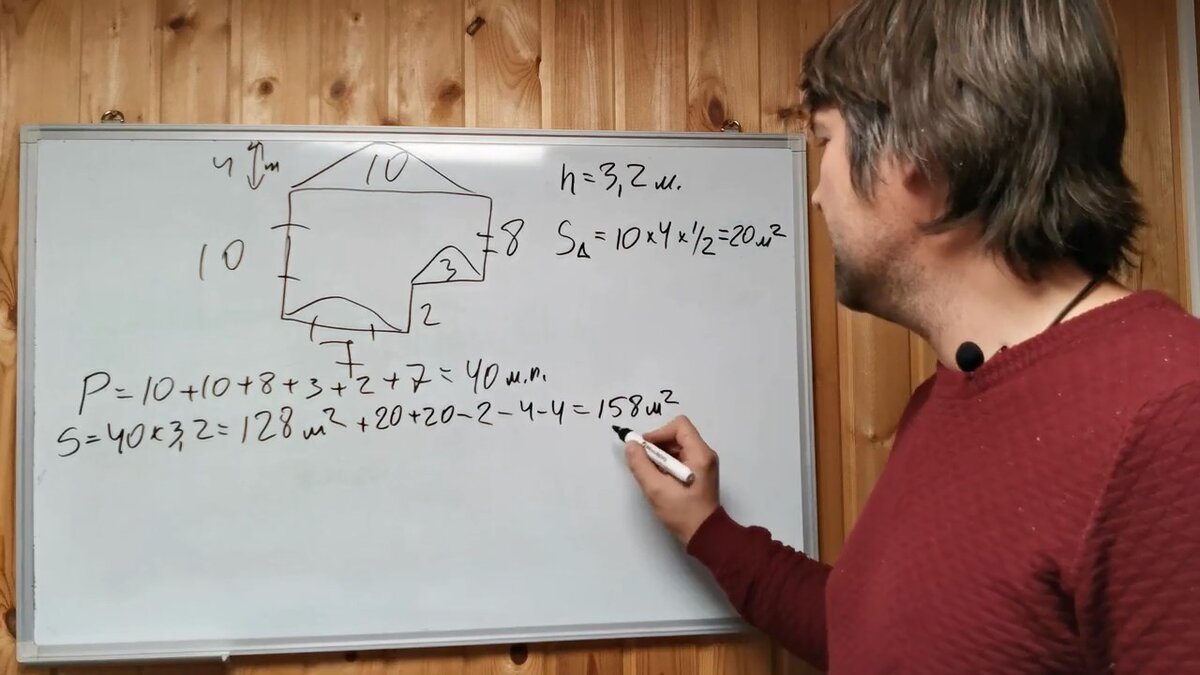 4 м
10
h = 3,2 м.
10
8
S△ = 10 × 4 × 1/2 = 20 м²
3
2
7
P = 10 + 10 + 8 + 3 + 2 + 7 = 40 м.п.
S = 40 × 3,2 = 128 м² + 20 + 20 - 2 - 4 - 4 = 158 м²